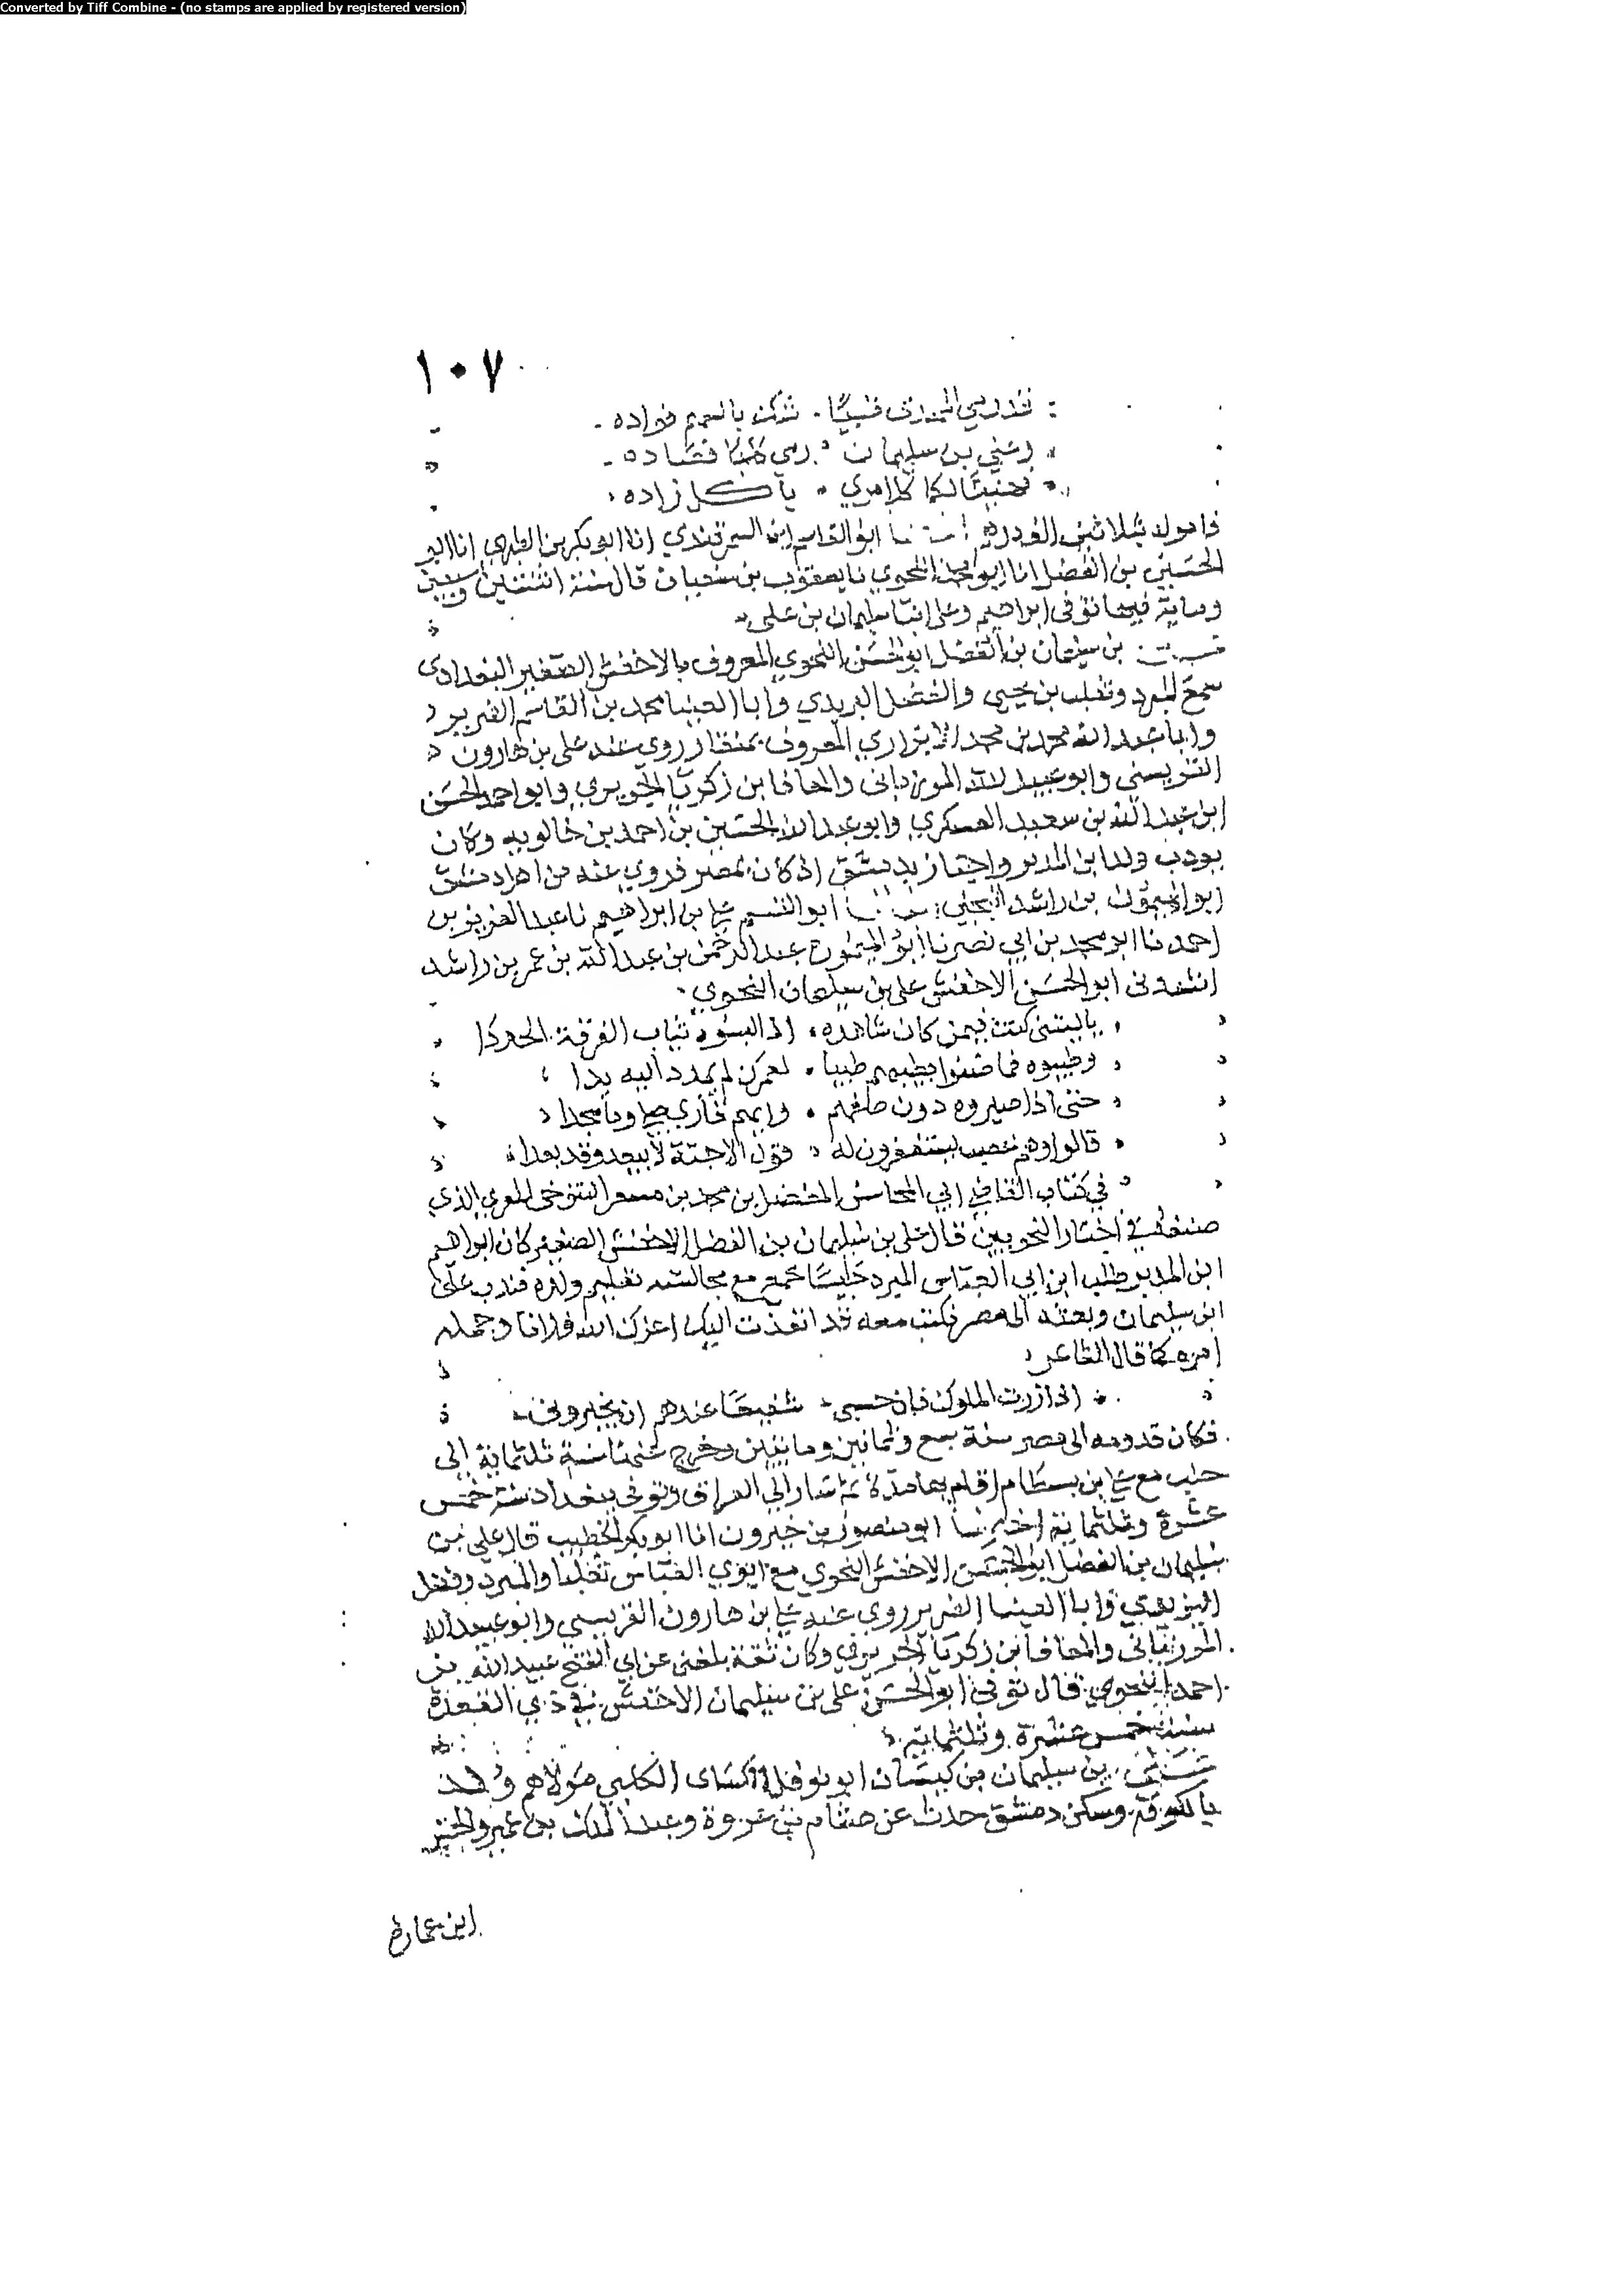 Converted by Tiff Combine - (no stamps are applied by registered version)
١٠٧
قد رمى المهدي ظبيا شك بالسهم فؤاده
وعلي بن سليمان رمى كلبا فصاده
فهنيئا لكما كل امرئ يأكل زاده
فامر له بثلاثين الف درهم ابو القاسم ابن السمرقندي انا ابو بكر بن الطبري انا ابو
الحسين بن الفضل انا ابو محمد النحوي نا يعقوب بن سفيان قال سنة اثنتين وسبعين
ومايه فيها توفي ابراهيم وعلي ابنا سليمان بن علي
بن سليمان بن الفضل ابو الحسن النحوي المعروف بالاخفش الصغير البغدادي
سمع المبرد وثعلب بن يحيى والفضل اليزيدي وابا العينا محمد بن القاسم الضرير
وابا عبد الله محمد بن محمد الابزاري المعروف بمنقار روي عنه علي بن هارون
القرميسني وابو عبيد الله المرزباني والمعافا بن زكريا الجريري وابو احمد الحسن
ابن عبد الله بن سعيد العسكري وابو عبد الله الحسين بن احمد بن خالويه وكان
يودب ولد ابن المدبر واجتاز بدمشق اذ كان بمصر فروي عنه من اهل دمشق
ابو الميمون بن راشد البجلي ابو القسم علي بن ابراهيم نا عبد العزيز بن
احمد نا ابو محمد بن ابي نصر نا ابو الميمون عبد الرحمن بن عبد الله بن عمر بن راشد
انشدني ابو الحسن الاخفش علي بن سليمان النحوي
ياليتني كنت فيمن كان شاهده اذ البسوه ثياب الفرقة الجددا
وطيبوه فما ضنوا بطيبهم طيبا لعمرك لم يمدد اليه يدا
حتى اذا صيروه دون صفهم وامهم قاري صلى وما سجدا
قالوا وهم عصب يستغفرون له قول الاحبة لا يبعد وقد بعدا
في كتاب القاضي ابي المحاسن المفضل بن محمد بن مسعر التنوخي المعري الذي
صنفه في اخبار النحويين قال علي بن سليمان بن الفضل الاخفش الصغير كان ابراهيم
ابن المدبر طلب ابن ابي العباس المبرد جليسا يجمع مع مجالسته تعليم ولده فندب علي
ابن سليمان وبعثه الى مصر وكتب معه قد انفذت اليك اعزك الله فلانا وجملة
امره كما قال الشاعر
اذا زرت الملوك فان حسبي شفيعا عندهم ان يخبروني
فكان قدومه الى مصر سنة سبع وثمانين ومايتين وخرج عنها سنة ثلثماية إلى
حلب مع علي بن بسطام اقام بها مدة ثم سار الى العراق وتوفي ببغداد سنة خمس
عشرة وثلثماية اخبرنا ابو منصور بن خيرون انا ابو بكر الخطيب قال علي بن
سليمان بن الفضل ابو الحسن الاخفش النحوي سمع ابوي العباس ثعلبا والمبرد وفضل
اليزيدي وابا العينا الضرير روي عنه علي بن هارون القرميسي وابو عبيد الله
المرزباني والمعافا بن زكريا الجريري وكان ثقة بلغني عن ابي الفتح عبيد الله بن
احمد النحوي قال توفي ابو الحسن علي بن سليمان الاخفش في ذي القعدة
سنة خمس عشرة وثلثماية
بن سليمان بن كيسان ابو نوفل الكلبي مولاهم ولد
بالكوفة وسكن دمشق حدث عن هشام بن عروة وعبد الملك بن عمير والحسن
ابن عمارة